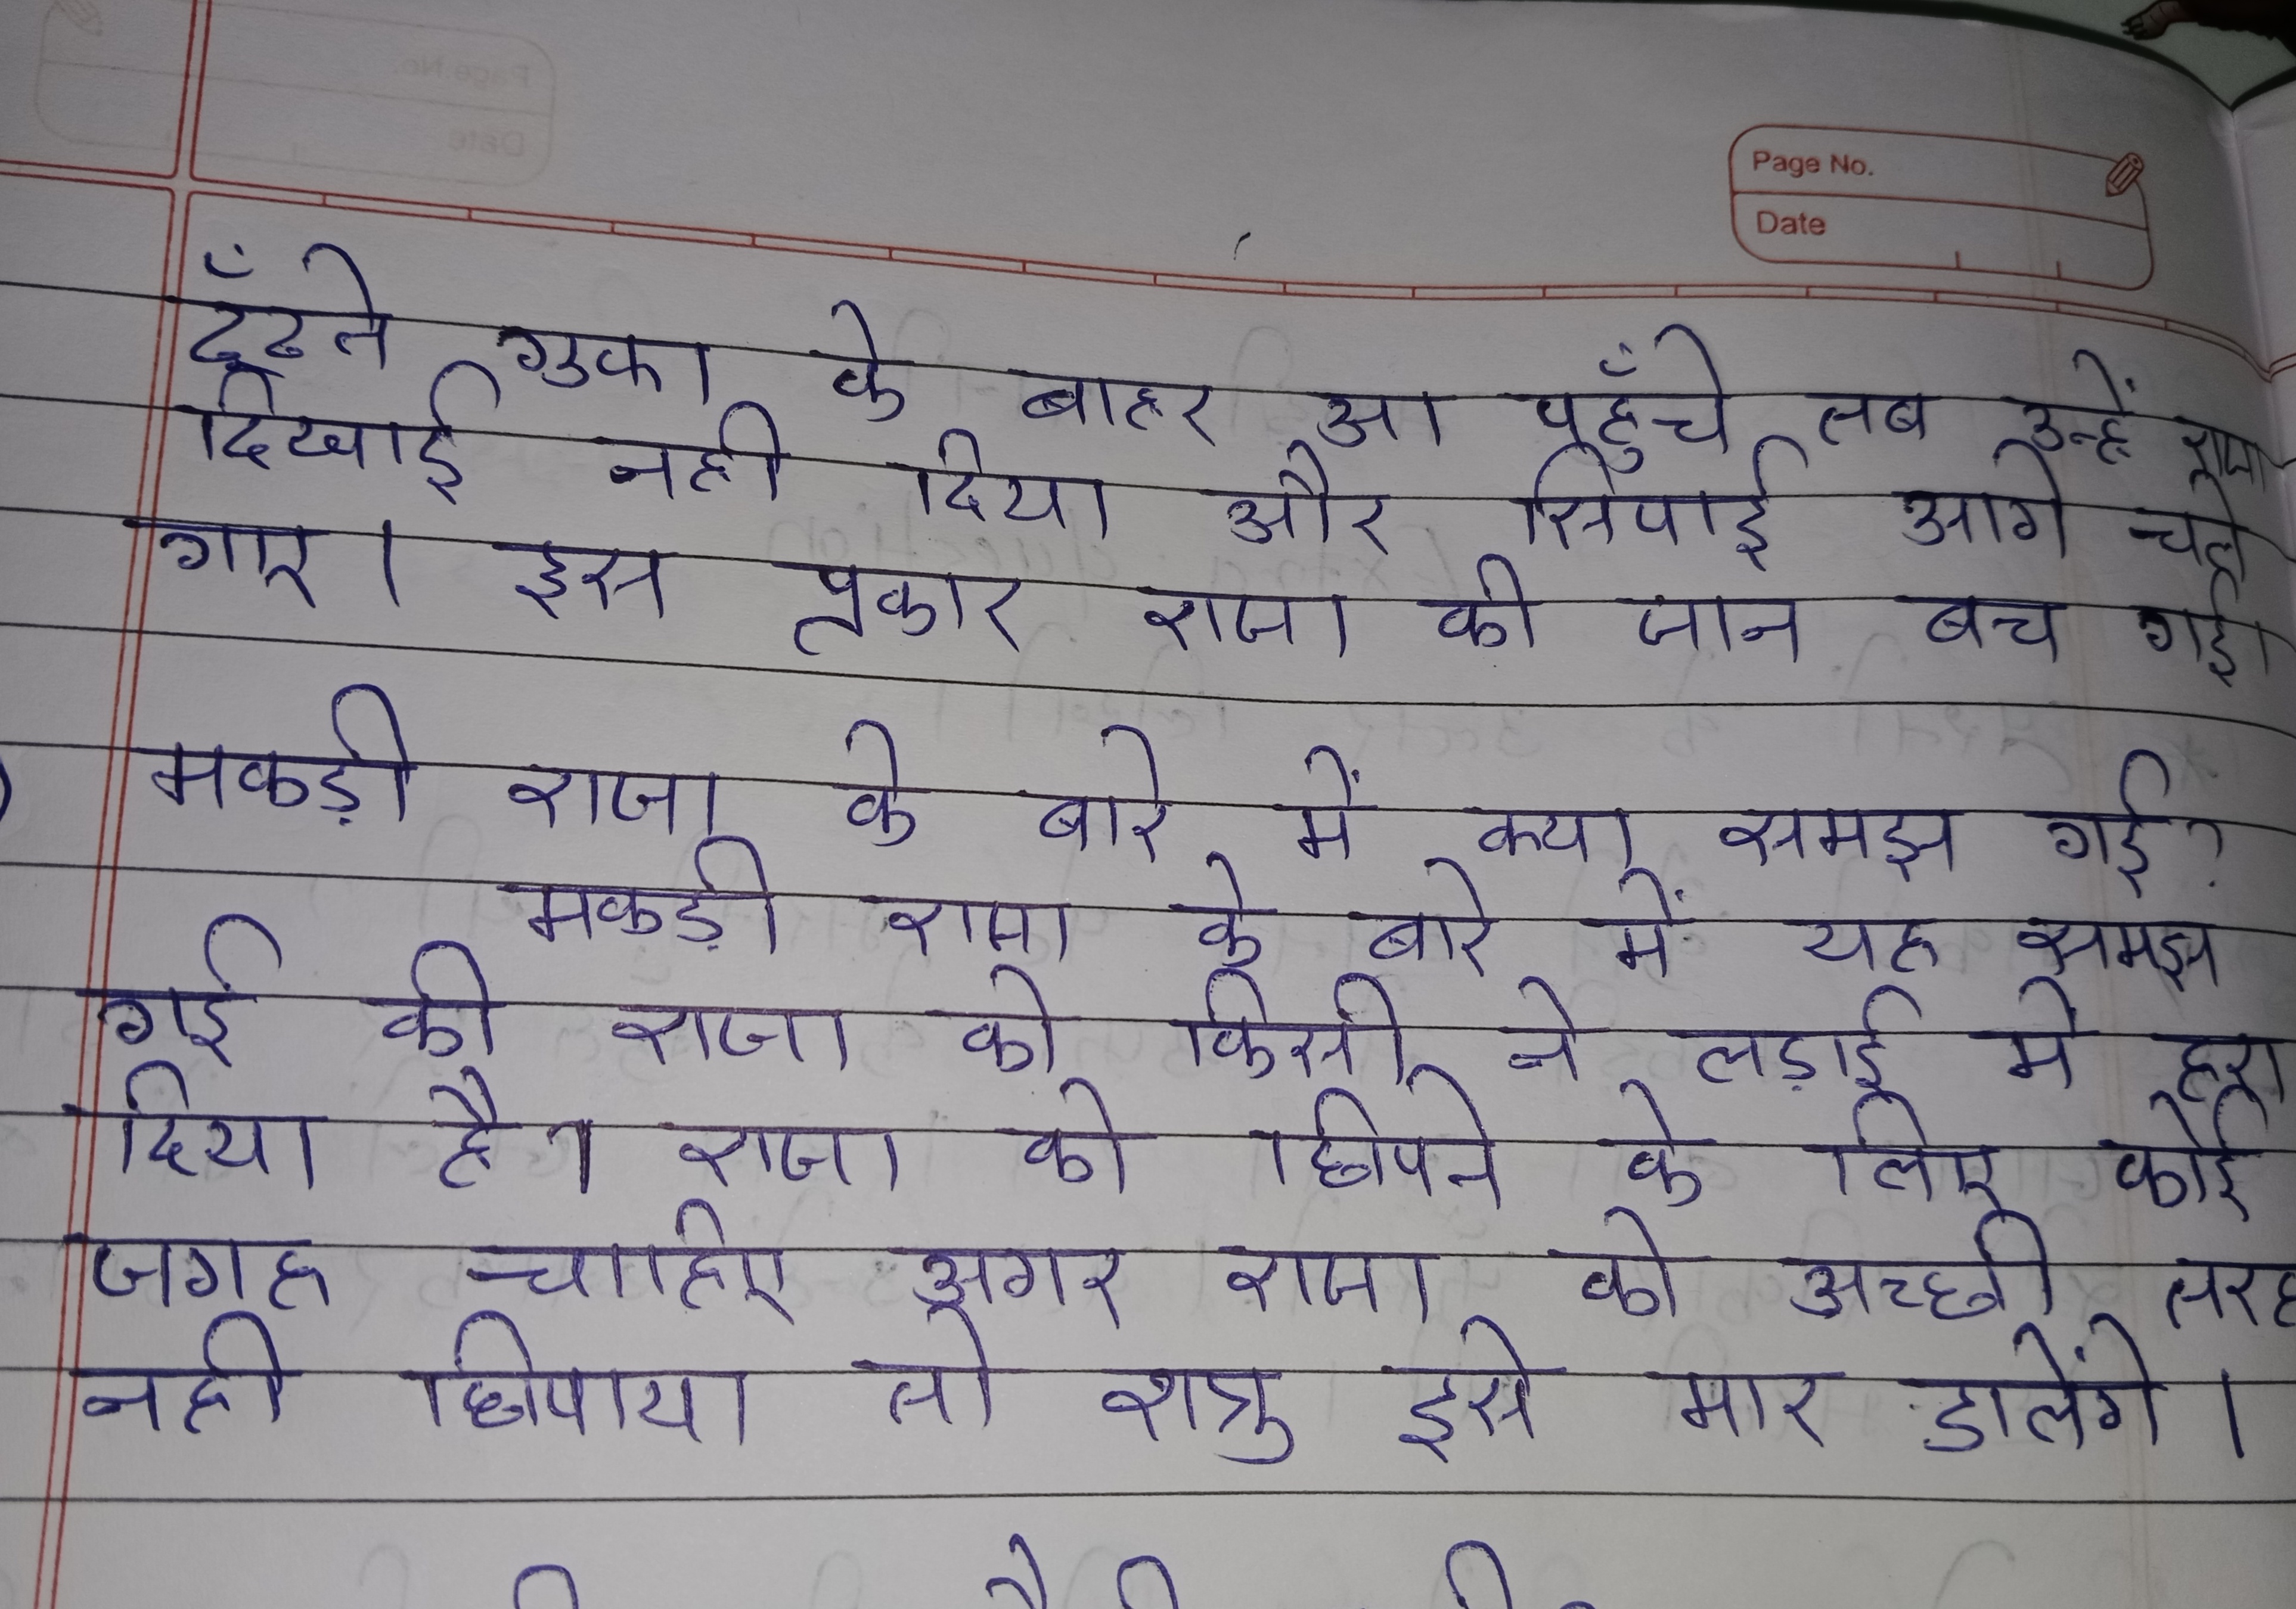 Page No.
Date
ढूँढते गुफा के बाहर आ पहुँचे तब उन्हें राजा
दिखाई नही दिया और सिपाई आगे चले
गए। इस प्रकार राजा की जान बच गई।
मकड़ी राजा के बारे में क्या समझ गई?
मकड़ी राजा के बारे में यह समझ
गई की राजा को किसी ने लड़ाई मे हरा
दिया है। राजा को छिपने के लिए कोई
जगह चाहिए अगर राजा को अच्छी तरह
नही छिपाया तो शत्रु इसे मार डालेंगे।